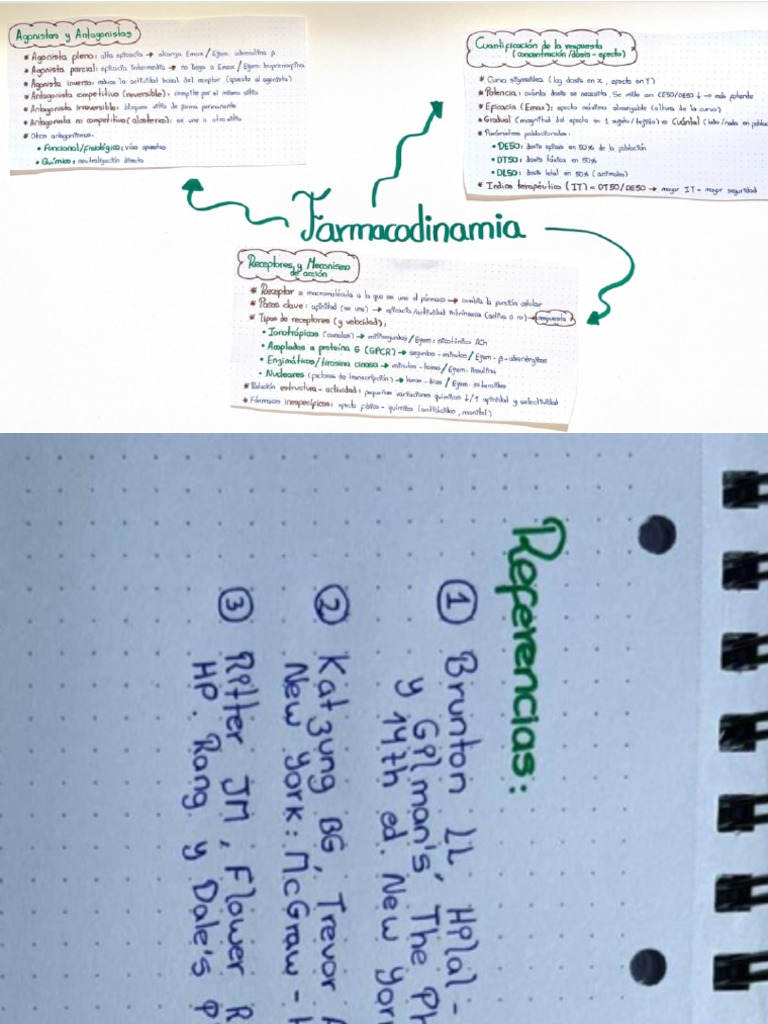 Agonistas y Antagonistas
* Agonista pleno: alta eficacia → alcanza Emax / Ejem: adrenalina β
* Agonista parcial: eficacia intermedia → no llega a Emax / Ejem: buprenorfina
* Agonista inverso: reduce la actividad basal del receptor (opuesto al agonista)
* Antagonista competitivo (reversible): compite por el mismo sitio
* Antagonista irreversible: bloquea sitio de forma permanente
* Antagonista no competitivo (alostérico): se une a otro sitio
* Otros antagonismos:
• Funcional/fisiológico: vías opuestas
• Químico: neutralización directa
Cuantificación de la respuesta
(concentración/dosis - efecto)
* Curva sigmoidea (log dosis en x, efecto en Y)
* Potencia: cuánta dosis se necesita. Se mide en CE50/DE50 ↓ → más potente
* Eficacia (Emax): efecto máximo alcanzable (altura de la curva)
* Gradual (magnitud del efecto en 1 sujeto/tejido) vs Cuántal (todo/nada en poblac
* Parámetros poblacionales:
• DE50: dosis eficaz en 50% de la población
• DT50: dosis tóxica en 50%
• DL50: dosis letal en 50% (animales)
* Índice terapéutico (IT) = DT50/DE50 → mayor IT = mayor seguridad
Farmacodinamia
Receptores y Mecanismo
de acción
* Receptor = macromolécula a la que se une el fármaco → cambia la función celular
* Pasos clave: afinidad (se une) → eficacia/actividad intrínseca (activa o no) → respuesta
* Tipos de receptores (y velocidad):
• Ionotrópicos (canales) → milisegundos / Ejem: nicotínico ACh
• Acoplados a proteína G (GPCR) → segundos - minutos / Ejem: β-adrenérgicos
• Enzimáticos/tirosina cinasa → minutos - horas / Ejem: Insulina
• Nucleares (factores de transcripción) → horas - días / Ejem: esteroides
* Relación estructura - actividad: pequeñas variaciones químicas ↓/↑ afinidad y selectividad
* Fármacos inespecíficos: efecto físico - químico (antiácidos, manitol)
Referencias:
① Brunton LL, Hilal -
y Gilman's, The Ph
y 14th ed. New Yor
② Katzung BG, Trevor A
New York: McGraw - H
③ Ritter JM, Flower R
HP. Rang y Dale's P